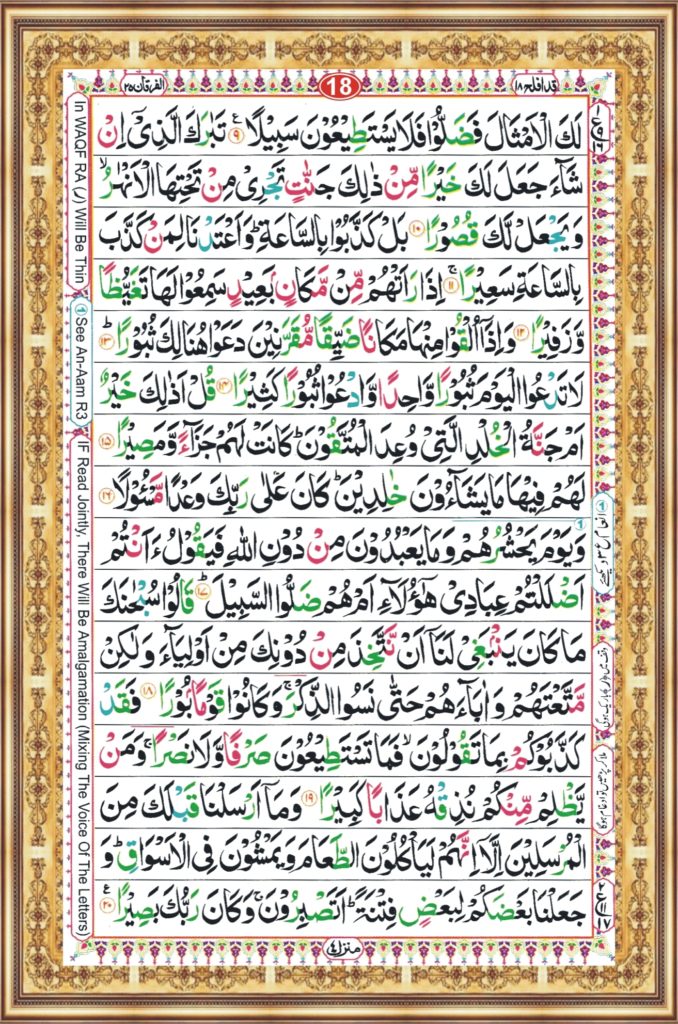 الفرقان ٢٥
18
قد افلح ١٨
لَكَ الْاَمْثَالَ فَضَلُّوْا فَلَا يَسْتَطِيْعُوْنَ سَبِيْلًا ۹ تَبٰرَكَ الَّذِىْۤ اِنْ
شَآءَ جَعَلَ لَكَ خَيْرًا مِّنْ ذٰلِكَ جَنّٰتٍ تَجْرِىْ مِنْ تَحْتِهَا الْاَنْهٰرُ ۙ
وَيَجْعَلْ لَّكَ قُصُوْرًا ۱۰ بَلْ كَذَّبُوْا بِالسَّاعَةِ ۟ وَاَعْتَدْنَا لِمَنْ كَذَّبَ
بِالسَّاعَةِ سَعِيْرًا ۚ ۱۱ اِذَا رَاَتْهُمْ مِّنْ مَّكَانٍۢ بَعِيْدٍ سَمِعُوْا لَهَا تَغَيُّظًا
وَّزَفِيْرًا ۱۲ وَاِذَاۤ اُلْقُوْا مِنْهَا مَكَانًا ضَيِّقًا مُّقَرَّنِيْنَ دَعَوْا هُنَالِكَ ثُبُوْرًا ؕ ۱۳
لَا تَدْعُوا الْيَوْمَ ثُبُوْرًا وَّاحِدًا وَّادْعُوْا ثُبُوْرًا كَثِيْرًا ۱۴ قُلْ اَذٰلِكَ خَيْرٌ
اَمْ جَنَّةُ الْخُلْدِ الَّتِىْ وُعِدَ الْمُتَّقُوْنَ ؕ كَانَتْ لَهُمْ جَزَآءً وَّمَصِيْرًا ۱۵
لَهُمْ فِيْهَا مَا يَشَآءُوْنَ خٰلِدِيْنَ ؕ كَانَ عَلٰى رَبِّكَ وَعْدًا مَّسْئُوْلًا ۱۶
وَيَوْمَ يَحْشُرُهُمْ وَمَا يَعْبُدُوْنَ مِنْ دُوْنِ اللّٰهِ فَيَقُوْلُ ءَاَنْتُمْ
اَضْلَلْتُمْ عِبَادِىْ هٰٓؤُلَآءِ اَمْ هُمْ ضَلُّوا السَّبِيْلَ ؕ ۱۷ قَالُوْا سُبْحٰنَكَ
مَا كَانَ يَنْۢبَغِىْ لَنَاۤ اَنْ نَّتَّخِذَ مِنْ دُوْنِكَ مِنْ اَوْلِيَآءَ وَلٰكِنْ
مَّتَّعْتَهُمْ وَاٰبَآءَهُمْ حَتّٰى نَسُوا الذِّكْرَ ۚ وَكَانُوْا قَوْمًۢا بُوْرًا ۱۸ فَقَدْ
كَذَّبُوْكُمْ بِمَا تَقُوْلُوْنَ ۙ فَمَا تَسْتَطِيْعُوْنَ صَرْفًا وَّلَا نَصْرًا ۚ وَمَنْ
يَّظْلِمْ مِّنْكُمْ نُذِقْهُ عَذَابًا كَبِيْرًا ۱۹ وَمَاۤ اَرْسَلْنَا قَبْلَكَ مِنَ
الْمُرْسَلِيْنَ اِلَّاۤ اِنَّهُمْ لَيَاْكُلُوْنَ الطَّعَامَ وَيَمْشُوْنَ فِى الْاَسْوَاقِ ؕ وَ
جَعَلْنَا بَعْضَكُمْ لِبَعْضٍ فِتْنَةً ؕ اَتَصْبِرُوْنَ ۚ وَكَانَ رَبُّكَ بَصِيْرًا ۲۰
منزل ٤
In WAQF RA (ر) Will Be Thin
1 See An-Aam R3
IF Read Jointly, There Will Be Amalgamation (MIxing The Voice Of The Letters)